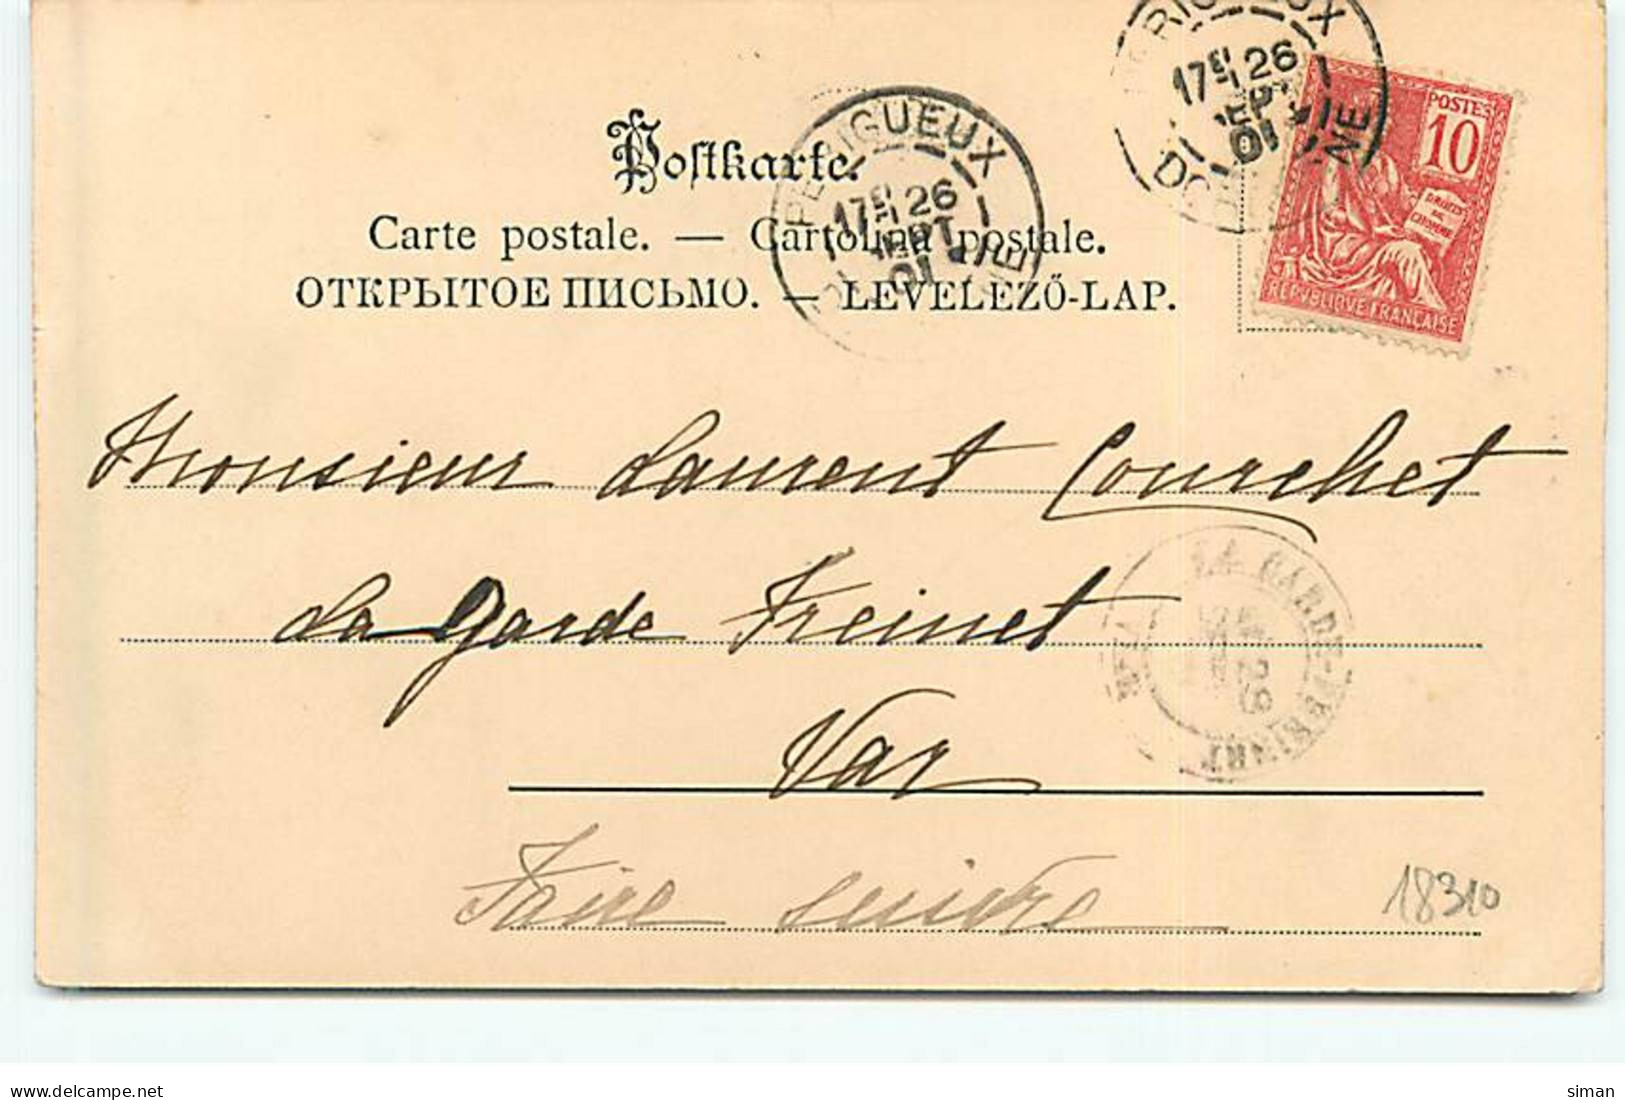 Postkarte.
Carte postale. — Cartolina postale.
ОТКРЫТОЕ ПИСЬМО. — LEVELEZŐ-LAP.
PERIGUEUX
17 26
SEPT
01
PERIGUEUX
17 26
SEPT
01
DORDOGNE
POSTES
10
DROITS
DE
L'HOMME
REPUBLIQUE FRANÇAISE
Monsieur Laurent Courchet
La Garde Freinet
Var
Faire suivre
LA GARDE-FREINET
18310
delcampe.net
siman